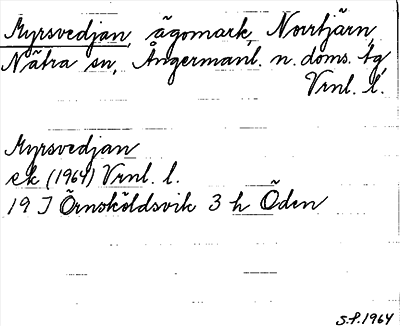 Myrsvedjan, ägomark, Norrtjärn,
Nätra sn, Ångermanl. n. doms. tg
Vrnl. l.
Myrsvedjan
ek (1964) Vrnl. l.
19 J Örnsköldsvik 3 h Öden
S.P. 1964